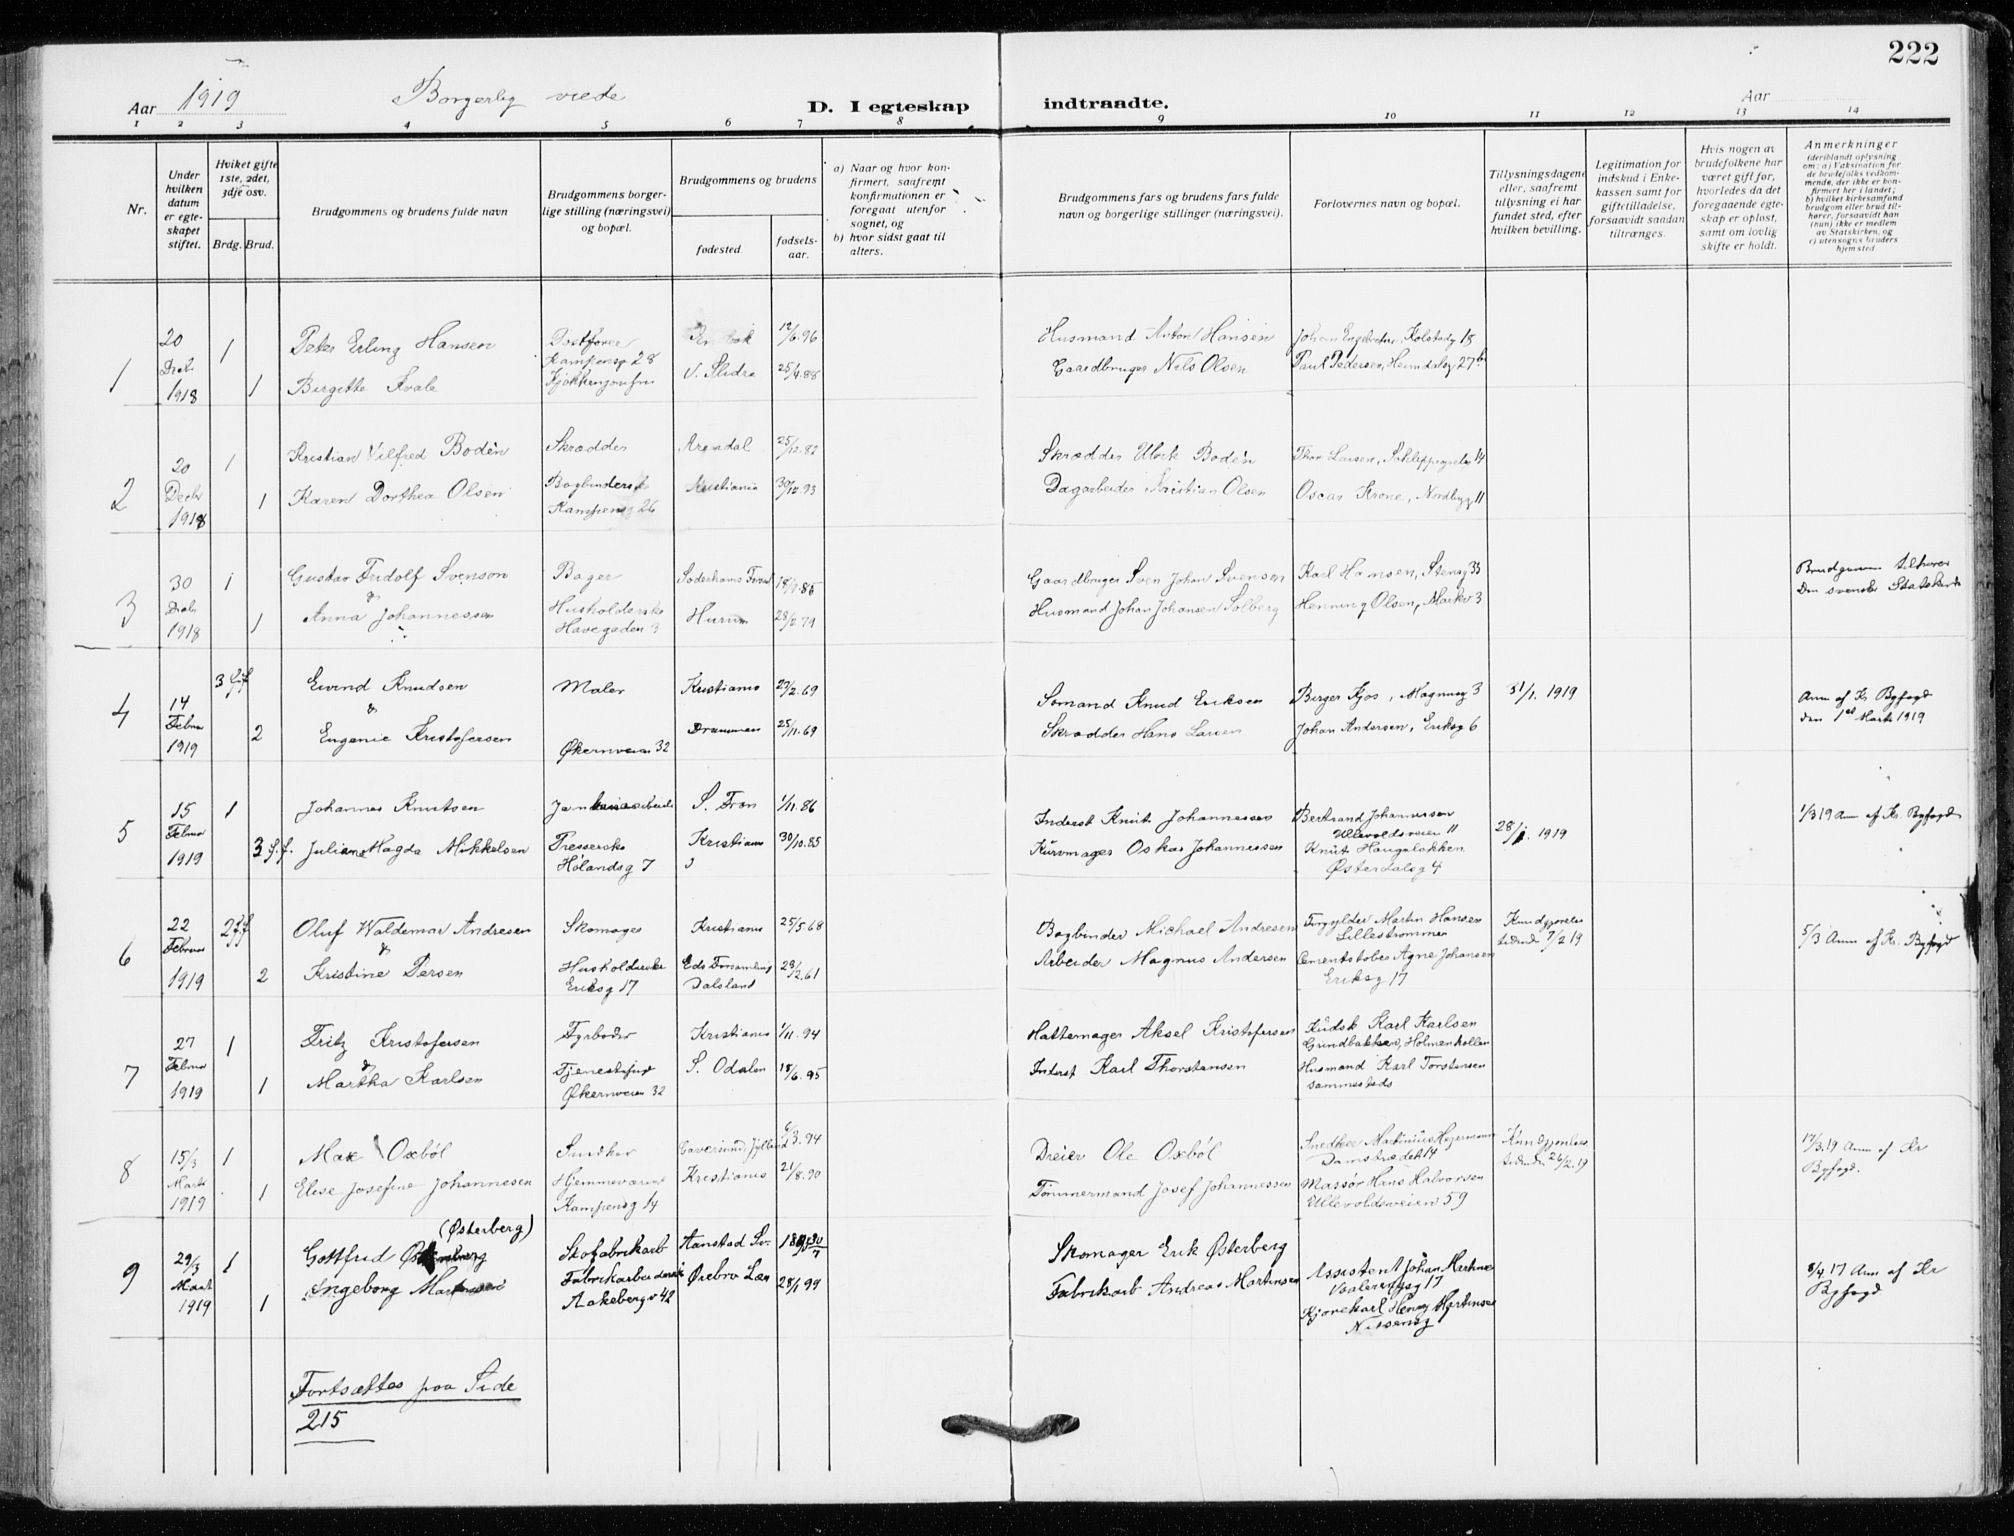 222
Aar 1919 Borgerlig viede D. I egteskap indtraadte. Aar
1 2 3 4 5 6 7 8 9 10 11 12 13 14
Nr.
Under hvilken datum er egteskapet stiftet.
Hvilket gifte 1ste, 2det, 3dje osv.
Brdg. Brud.
Brudgommens og brudens fulde navn
Brudgommens borgerlige stilling (næringsvei) og bopæl.
Brudgommens og brudens
fødested.
fødselsaar.
a) Naar og hvor konfirmert, saafremt konfirmationen er foregaat utenfor sognet, og
b) hvor sidst gaat til alters.
Brudgommens fars og brudens fars fulde navn og borgerlige stillinger (næringsvei).
Forlovernes navn og bopæl.
Tillysningsdagene eller, saafremt tillysning ei har fundet sted, efter hvilken bevilling.
Legitimation for indskud i Enkekassen samt for giftetilladelse, forsaavidt saadan tiltrænges.
Hvis nogen av brudefolkene har været gift før, hvorledes da det foregaaende egteskap er opløst, samt om lovlig skifte er holdt.
Anmerkninger
(deriblandt oplysning om: a) Vaksination for de brudefolks vedkommende, der ikke er konfirmert her i landet; b) hvilket kirkesamfund brudgom eller brud tilhører, forsaavidt han (hun) ikke er medlem av Statskirken, og c) utensogns bruders hjemsted
1 20 Decbr 1918 1 Peter Erling Hansen 12/6.96 Husmand Anton Hansen Johan Engebretsen, Kolstadg 18
Kampensg 28
1 Birgitte Kvale Kjøkkenjomfru V. Slidre 25/4.88 Gaardbruger Nils Olsen Paul Pedersen, Heimdalsg 27b
2 20 Decbr 1918 1 Kristian Vilfred Bodén Skrædder Arendal 25/12.82 Skrædder Ulrik Bodén Thor Larsen, 14
1 Karen Dorthea Olsen Bogbinderske Kristiania 30/10.93 Dagarbeider Kristian Olsen Oscar Krone, Nordbyg 11
Kampensg 26
3 30 Decbr 1918 1 Gustav Fridolf Svenson Bager Söderhams 18/10.85 Gaardbruger Sven Johan Svensen Karl Hansen, Stensg 33 Brudgommen tilhører
& Den svenske Statskirke
1 Anna Johannessen Husholderske Hurum 28/2.79 Husmand Johan Johansen Solberg Henning Olsen, Markv 3
Havegaden 3
4 14 Februar 1919 3 f.f. Eivind Knudsen Maler Kristiania 29/2.69 Sømand Knud Eriksen Birger Kjos, Magnusg 3 31/1. 1919 Anm af Kr Byfogd
& den 1st Marts 1919
2 Eugenie Kristofersen Økernveien 32 Drammen 25/11.69 Skrædder Hans Larsen Johan Andersen, Eriksg 6
5 15 Februar 1919 1 Johannes Knutsen S. Fron 1/11.86 Inderst Knut Johannessen Bertrand Johannessen 28/1. 1919 1/3 19 Anm af Kr. Byfogd
Ullevoldsveien 11
3 f.f. Juliane Magda Mikkelsen Presserske Kristiania 30/10.85 Kurvmager Oskar Johannessen Knut Haugeløkken
Hølandsg 7 Østerdalsg 4
6 22 Februar 1919 2 f.f. Oluf Waldemar Andresen Skomager Kristiania 25/5.68 Bogbinder Michael Andresen Forgylder Martin Hansen Kundgjørelses
& Lillestrømmen tidende 7/2 19 5/3 Anm af Kr. Byfogd
2 Kristine Persen Husholderske Eds Forsamling 28/2.61 Arbeider Magnus Andersen Cementstøber Agne Johansen
Eriksg 17 Dalsland Eriksg 17
7 27 Februar 1919 1 Fritz Kristofersen Fyrbøder Kristiania 1/11.94 Hattemager Aksel Kristofersen Kudsk Karl Karlsen
& Grindbakken, Holmenkollen
1 Martha Karlsen Tjenestepige S. Odalen 18/6.95 Inderst Karl Thorstensen Husmand Karl Torstensen
Økernveien 32 sammesteds
8 15/3 Marts 1919 1 Max Oxböl Snedker Jylland 6/3.94 Dreier Ole Oxböl Snedker Martinius Hegermann Kundgjørelses 17/3.19 Anm af Kr
Damstrædet 14 tidende 26/2.19 Byfogd.
1 Elise Josefine Johannesen Hjemmeværende Kristiania 21/8.90 Tømmermand Josef Johannessen Massør Hans Halvorsen
Kampensg 14 Ullevoldsveien 59
(Østerberg)
9 29/3 Marts 1919 1 Gottfrid Skofabrikarb Skomager Erik Østerberg Assistent Johan Martinsen 8/4 17 Anm af Kr
Vaalerenggg 17 Byfogd
1 Ingeborg Martinsen Fabrikarbeiderske Ørebro Læn 28/1 99 Fabrikarb Andreas Martinsen Kjørekarl Henry Martinsen
Aakebergv 42 Nissensg
Fortsættes paa Side
215